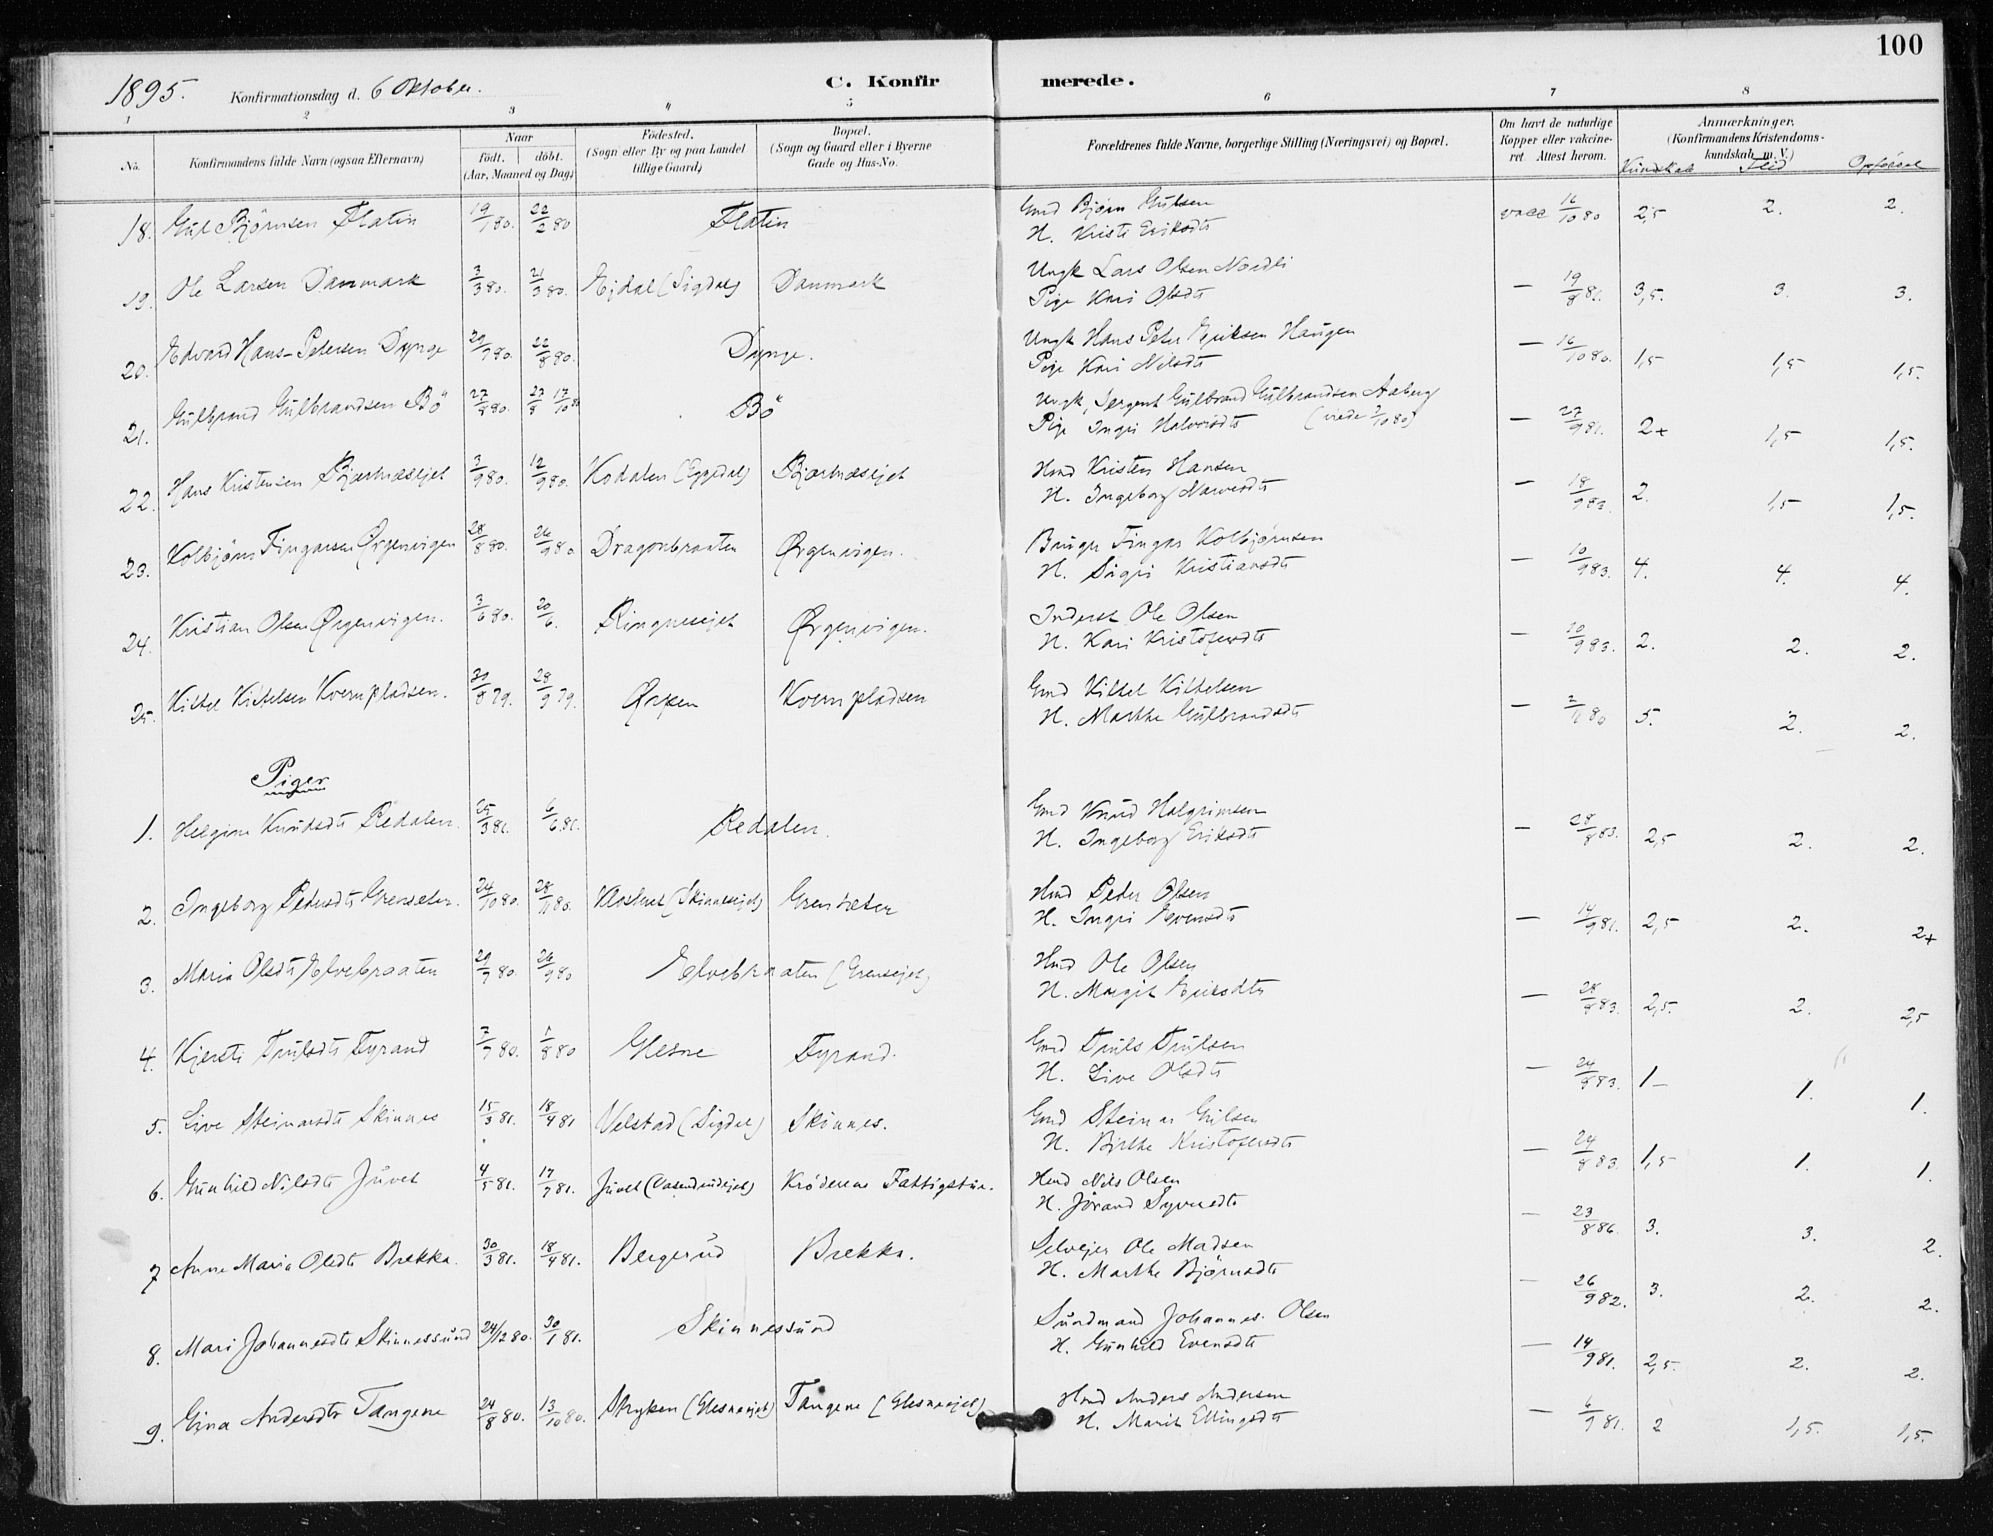 100
1895. Konfirmationsdag d. 6 Oktober. C. Konfirmerede.
1 2 3 4 5 6 7 8
No. Konfirmandens fulde Navn (ogsaa Efternavn) Naar Født. døbt. (Aar, Maaned og Dag) Fødested. (Sogn eller By og paa Landet tillige Gaard) Bopæl. (Sogn og Gaard eller i Byerne Gade og Hus-No. Forældrenes fulde Navne, borgerlige Stilling (Næringsvei) og Bopæl. Om havt de naturlige Kopper eller vakcineret. Attest herom. Anmærkninger. (Konfirmandens Kristendomskundskab m. V.) Kundskab Flid Opførsel
18. Gul Bjørnsen Flatin 19/1 80. 22/2 80 Flatin Gmd Bjørn Gulsen vacc 16/10 80 2,5 2. 2.
H. Kristi Eriksdt
19. Ole Larsen Danmark 3/3 80. 21/3 80. Ejdal (Sigdal) Danmark Ungk Lars Olsen Nordli — 19/8 81. 3,5. 3. 3.
Pige Kari Olsdt
20. Edvard Hans-Petersen Dynge 29/7 80. 22/8 80. Dynge. Ungk Hans Peter Eriksen Haugen — 16/10 80. 1,5 1,5 1,5.
Pige Kari Nilsdt
21. Gulbrand Gulbrandsen Bö 27/8 80. 27/8 17/10 80 Bö Ungk, Sergent Gulbrand Gulbrandsen Aaberg — 27/9 81. 2+ 1,5 1,5.
Pige Ingri Halvorsdt
22. Hans Kristensen Bjertnæsejet 3/9 80. 12/9 80. Kodalen (Eggedal) Bjertnæsejet Hmd Kristen Hansen — 18/9 83. 2. 1,5 1,5.
H. Ingeborg Narvesdt
23. Kolbjørn Fingarsen Ørgenvigen 28/8 80. 26/9 80 Dragonbraaten Ørgenvigen. Bruger Fingar Kolbjørnsen — 10/9 83. 4. 4. 4.
H. Sigri Kristiansdt
24. Kristian Olsen Ørgenvigen. 3/6 80. 20/6. Ringnesejet Ørgenvigen. Inderst Ole Olsen — 10/9 83. 2. 2. 2.
H. Kari Kristofersdt
25. Kittel Kittelsen Kvernpladsen. 31/8 79. 28/9 79. Ørpen Kvernpladsen Gmd Kittel Kittelsen — 2/11 80 5. 2. 2.
H. Marthe Gulbrandsdt
Piger
1. Helgine Knudsdt Redalen. 25/3 81. 6/6 81. Redalen. Gmd Knud Halgrimsen — 28/8 83. 2,5 2. 2.
H. Ingeborg Eriksdt
2. Ingeborg Petersdt Grensæter. 24/10 80. 28/11 80. (Skinnesejet) Grensæter Hmd Peder Olsen — 14/9 81. 2,5 2. 2+
H. Ingri Evensdt
3. Maria Olsdt Elvebraaten 29/7 80. 26/9 80 Elvebraaten (Grensejet) Hmd Ole Olsen — 28/8 83. 2,5. 2. 2,5
H. Margit Eriksdt
4. Kjersti Trulsdt Fyrand 7/7 80. 1/8 80 Glesne Fyrand. Gmd Truls Trulsen — 24/8 83. 1- 1. 1.
H. Live Olsdt
5. Live Steinarsdt Skinnes 15/3 81. 18/4 81 Velstad (Sigdal) Skinnes. Gmd Steinar Gulsen — 24/8 83. 1,5 1. 1.
H. Birthe Kristofersdt
6. Gunhild Nilsdt Juvet 4/5 81. 17/7 81. Juvet Krøderens Fattigstue. Hmd Nils Olsen — 23/8 86. 3. 3. 2.
H. Jørand Syversdt
7 Anne Maria Olsdt Brekka. 30/3 81. 18/4 81. Bergerud Brekka. Selvejer Ole Madsen — 26/9 82. 3. 2. 2.
H. Marthe Bjørnsdt
8. Mari Johannesdt Skinnessund 24/12 80. 30/1 81. Skinnessund Sundmand Johannes Olsen — 14/9 81. 2,5. 2. 2.
H. Gunhild Evensdt
9. Gina Andersdt Tangene 24/8 80. 13/10 80. Stryken (Glesneejet) Tangene (Glesneejet) Hmd Anders Andersen — 6/9 81. 2 1,5. 1,5.
H. Marit Ellingsdt